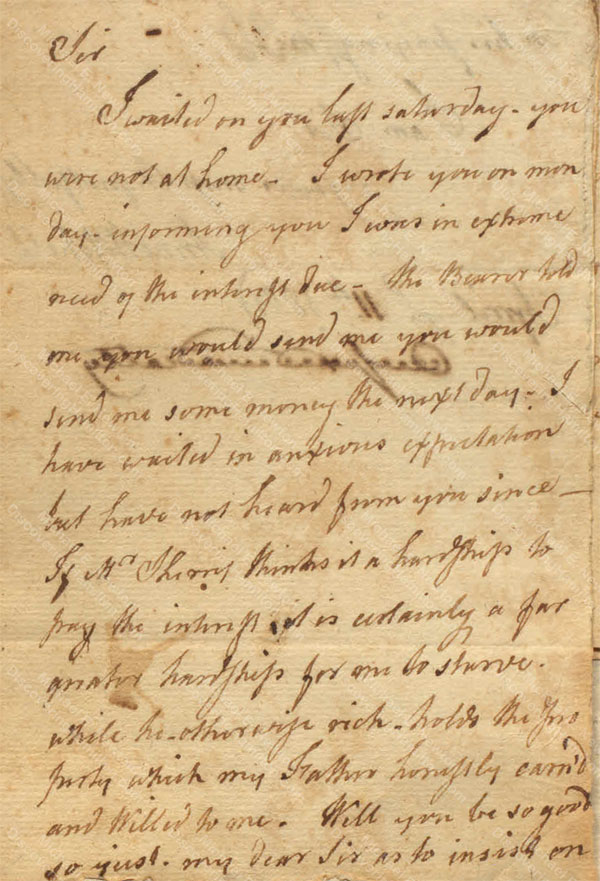 Sir
I waited on you last saturday - you
were not at home - I wrote you on mon
day - informing you I was in extreme
need of the interest due - the Bearer told
me you would send me you would
send me some money the next day - I
have waited in anxious expectation
but have not heard from you since -
If Mr Sherris thinks it a hardship to
pay the interest it is certainly a far
greator hardship for me to starve.
while he - otherwise rich - holds the pro
perty which my Father honestly earn'd
and Willed to me. Will you be so good
so just - my dear Sir as to insist on